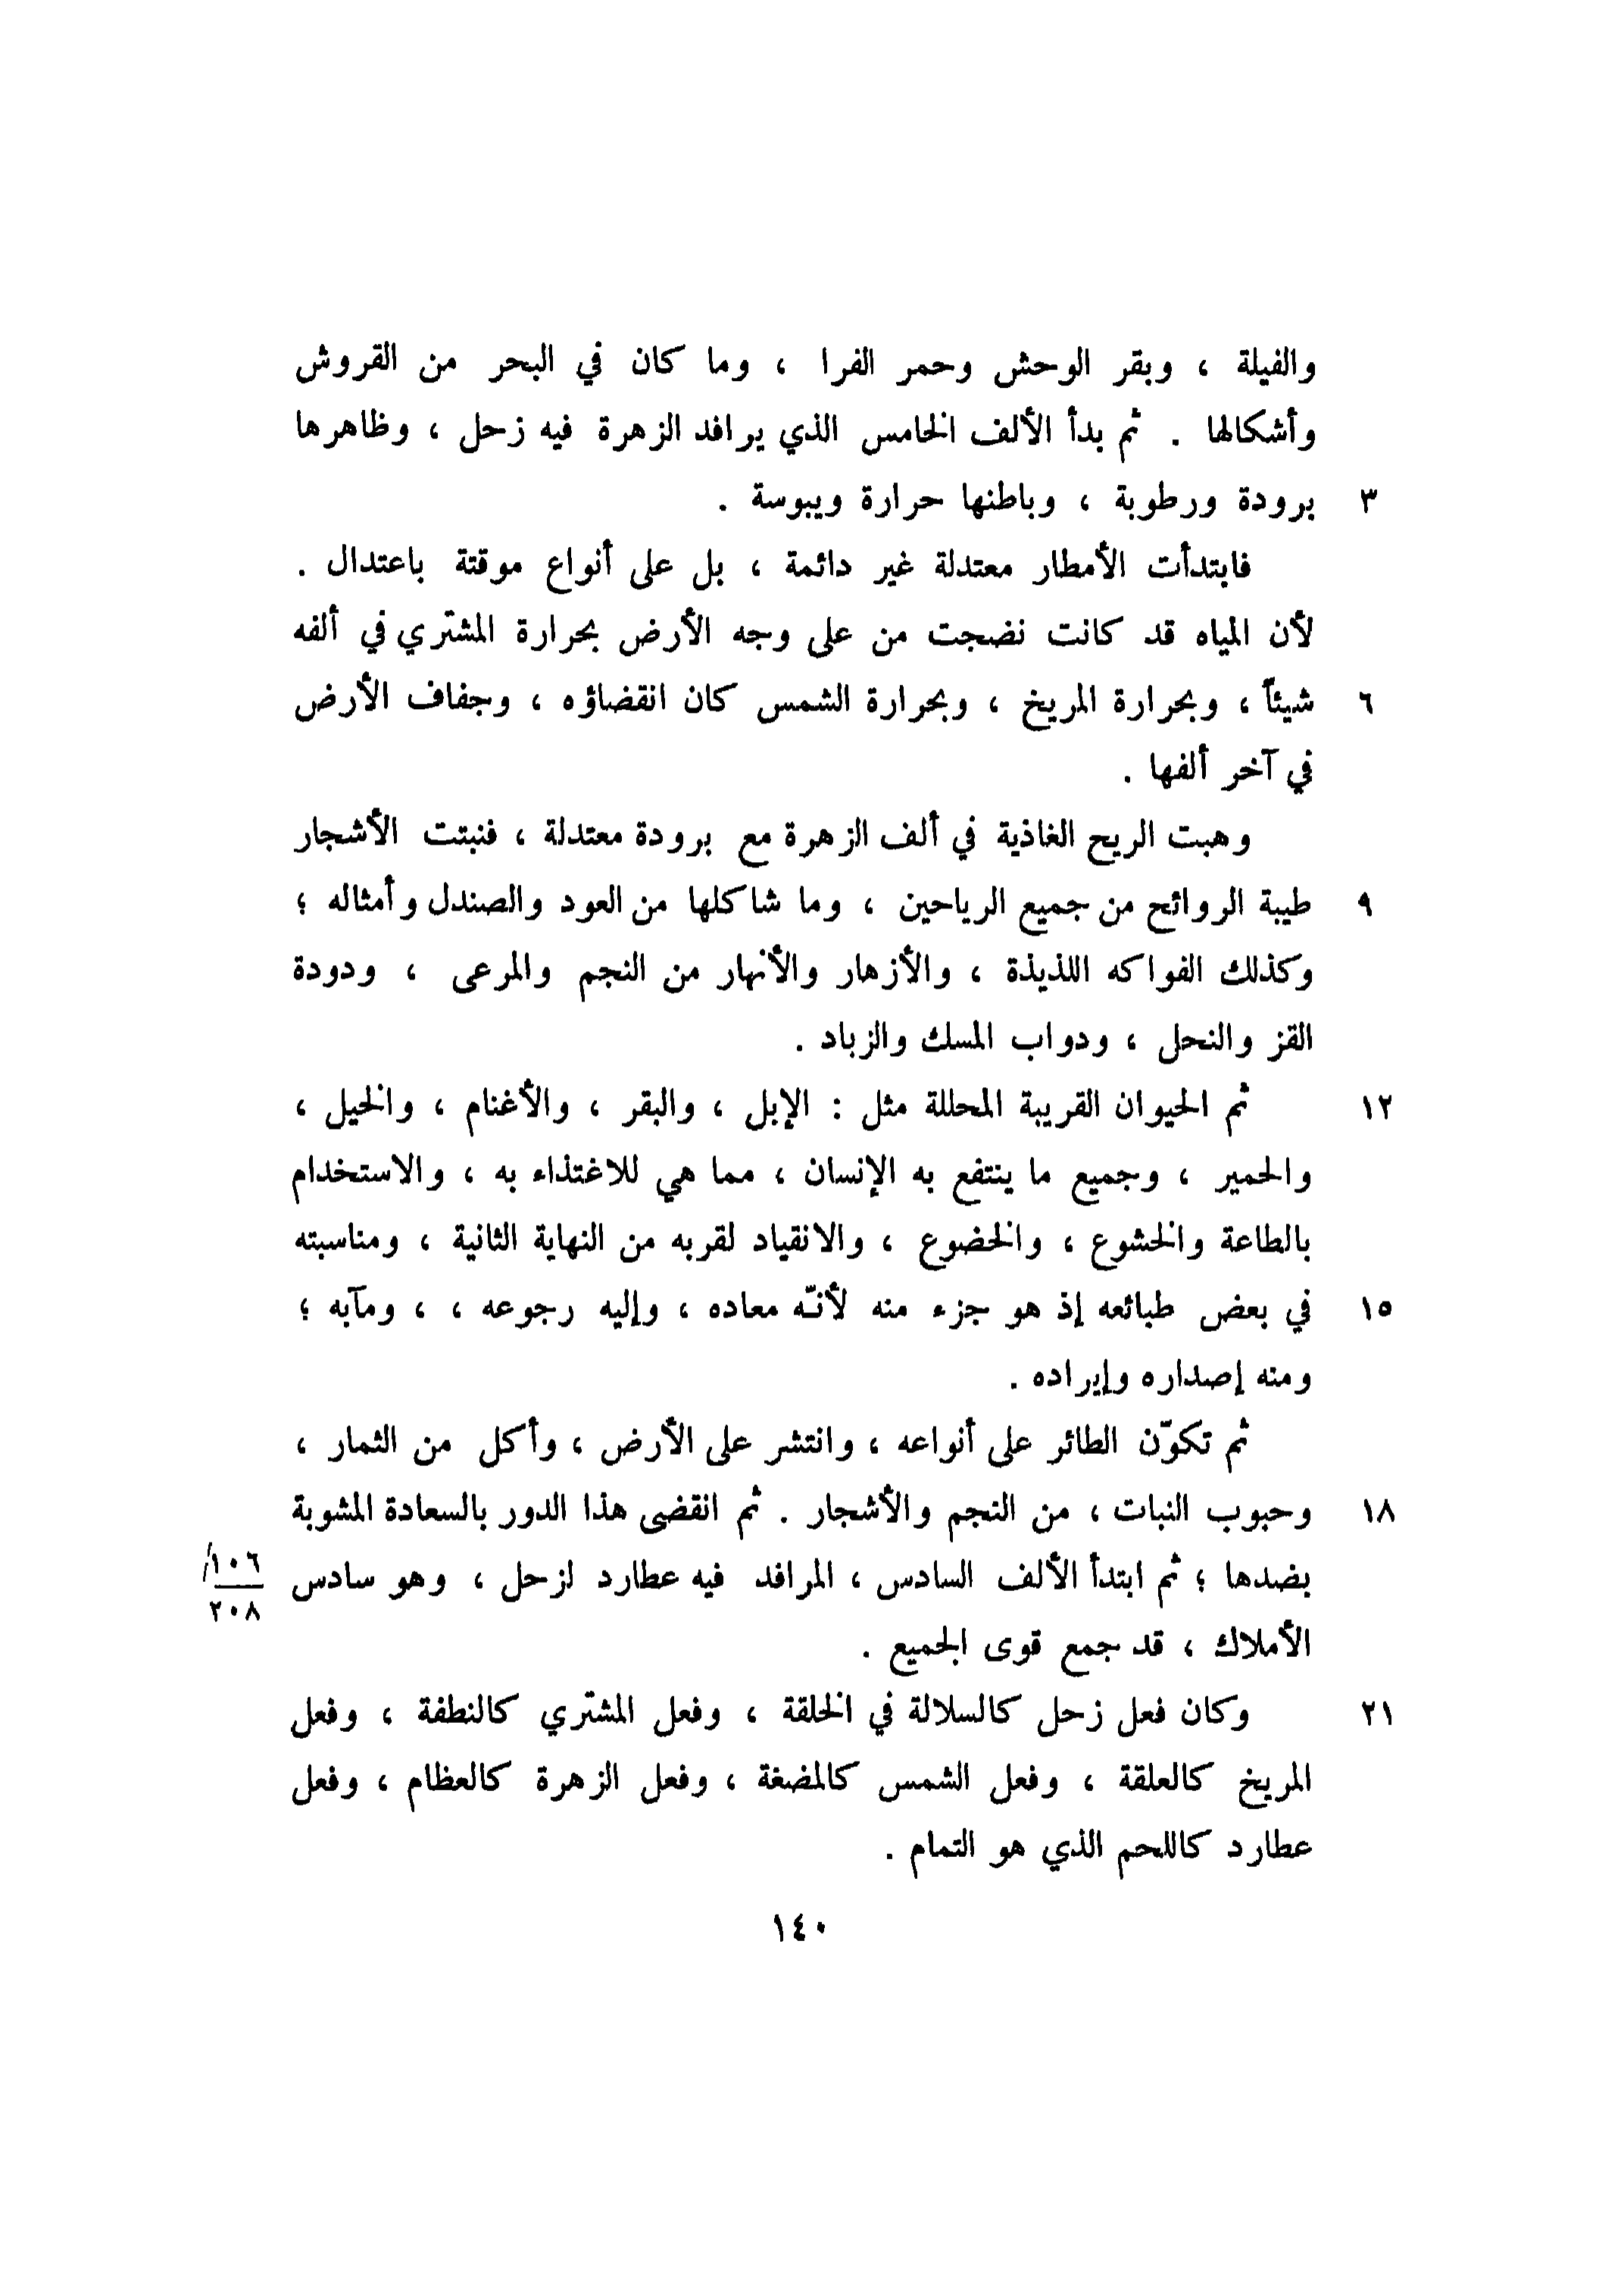 والفيلة ، وبقر الوحش وحمر الفرا ، وما كان في البحر من القروش
وأشكالها . ثم بدأ الألف الخامس الذي يرافد الزهرة فيه زحل ، وظاهرها
٣ برودة ورطوبة ، وباطنها حرارة ويبوسة .
فابتدأت الأمطار معتدلة غير دائمة ، بل على أنواع موقتة باعتدال .
لأن المياه قد كانت نضجت من على وجه الأرض بحرارة المشتري في ألفه
٦ شيئاً ، وبحرارة المريخ ، وبحرارة الشمس كان انقضاؤه ، وجفاف الأرض
في آخر ألفها .
وهبت الريح الغاذية في ألف الزهرة مع برودة معتدلة ، فنبتت الأشجار
٩ طيبة الروائح من جميع الرياحين ، وما شاكلها من العود والصندل وأمثاله ؛
وكذلك الفواكه اللذيذة ، والأزهار والأنهار من النجم والمرعى ، ودودة
القز والنحل ، ودواب المسك والزباد .
١٢ ثم الحيوان القريبة المحللة مثل : الإبل ، والبقر ، والأغنام ، والخيل ،
والحمير ، وجميع ما ينتفع به الإنسان ، مما هي للاغتذاء به ، والاستخدام
بالطاعة والخشوع ، والخضوع ، والانقياد لقربه من النهاية الثانية ، ومناسبته
١٥ في بعض طبائعه إذ هو جزء منه لأنّه معاده ، وإليه رجوعه ، ، ومآبه ؛
ومنه إصداره وإيراده .
ثم تكوّن الطائر على أنواعه ، وانتشر على الأرض ، وأكل من الثمار ،
١٨ وحبوب النبات ، من النجم والأشجار . ثم انقضى هذا الدور بالسعادة المشوبة
بضدها ؛ ثم ابتدأ الألف السادس ، المرافد فيه عطارد لزحل ، وهو سادس
١٠٦/
٢٠٨
الأملاك ، قد جمع قوى الجميع .
٢١ وكان فعل زحل كالسلالة في الخلقة ، وفعل المشتري كالنطفة ، وفعل
المريخ كالعلقة ، وفعل الشمس كالمضغة ، وفعل الزهرة كالعظام ، وفعل
عطارد كاللحم الذي هو التمام .
١٤٠